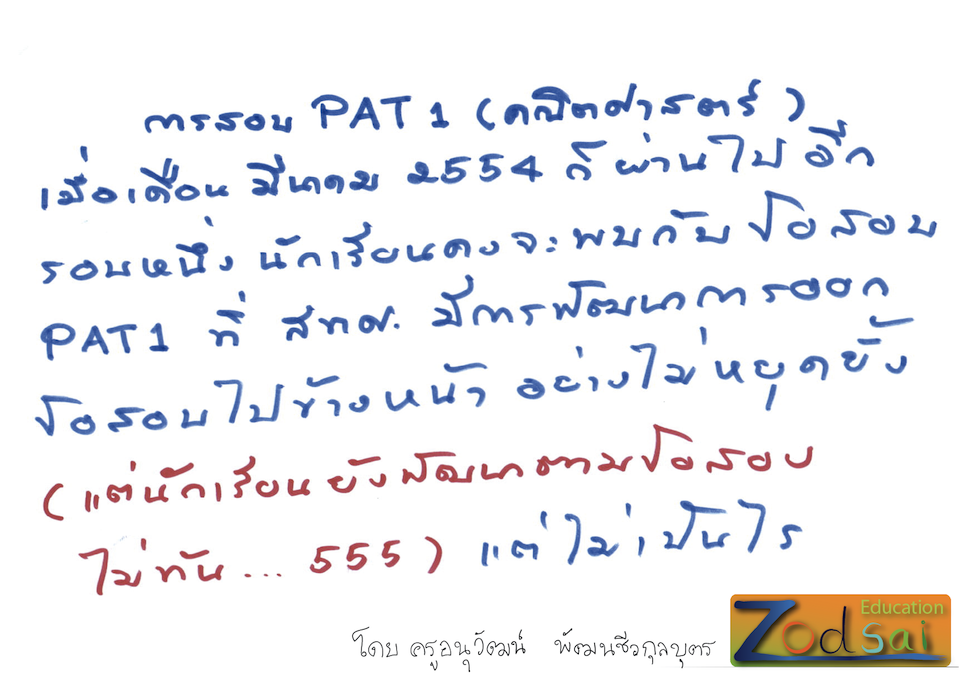 การสอบ PAT 1 (คณิตศาสตร์)
เมื่อเดือน มีนาคม 2554 ก็ผ่านไป อีก
รอบหนึ่ง นักเรียนคงจะพบกับ ข้อสอบ
PAT 1 ที่ สทศ. มีการพัฒนาการออก
ข้อสอบไปข้างหน้า อย่างไม่หยุดยั้ง
(แต่นักเรียนยังพัฒนาตามข้อสอบ
ไม่ทัน... 555) แต่ไม่เป็นไร
โดย ครูอนุวัฒน์ พัฒนชีวกุลบุตร
Zodsai Education